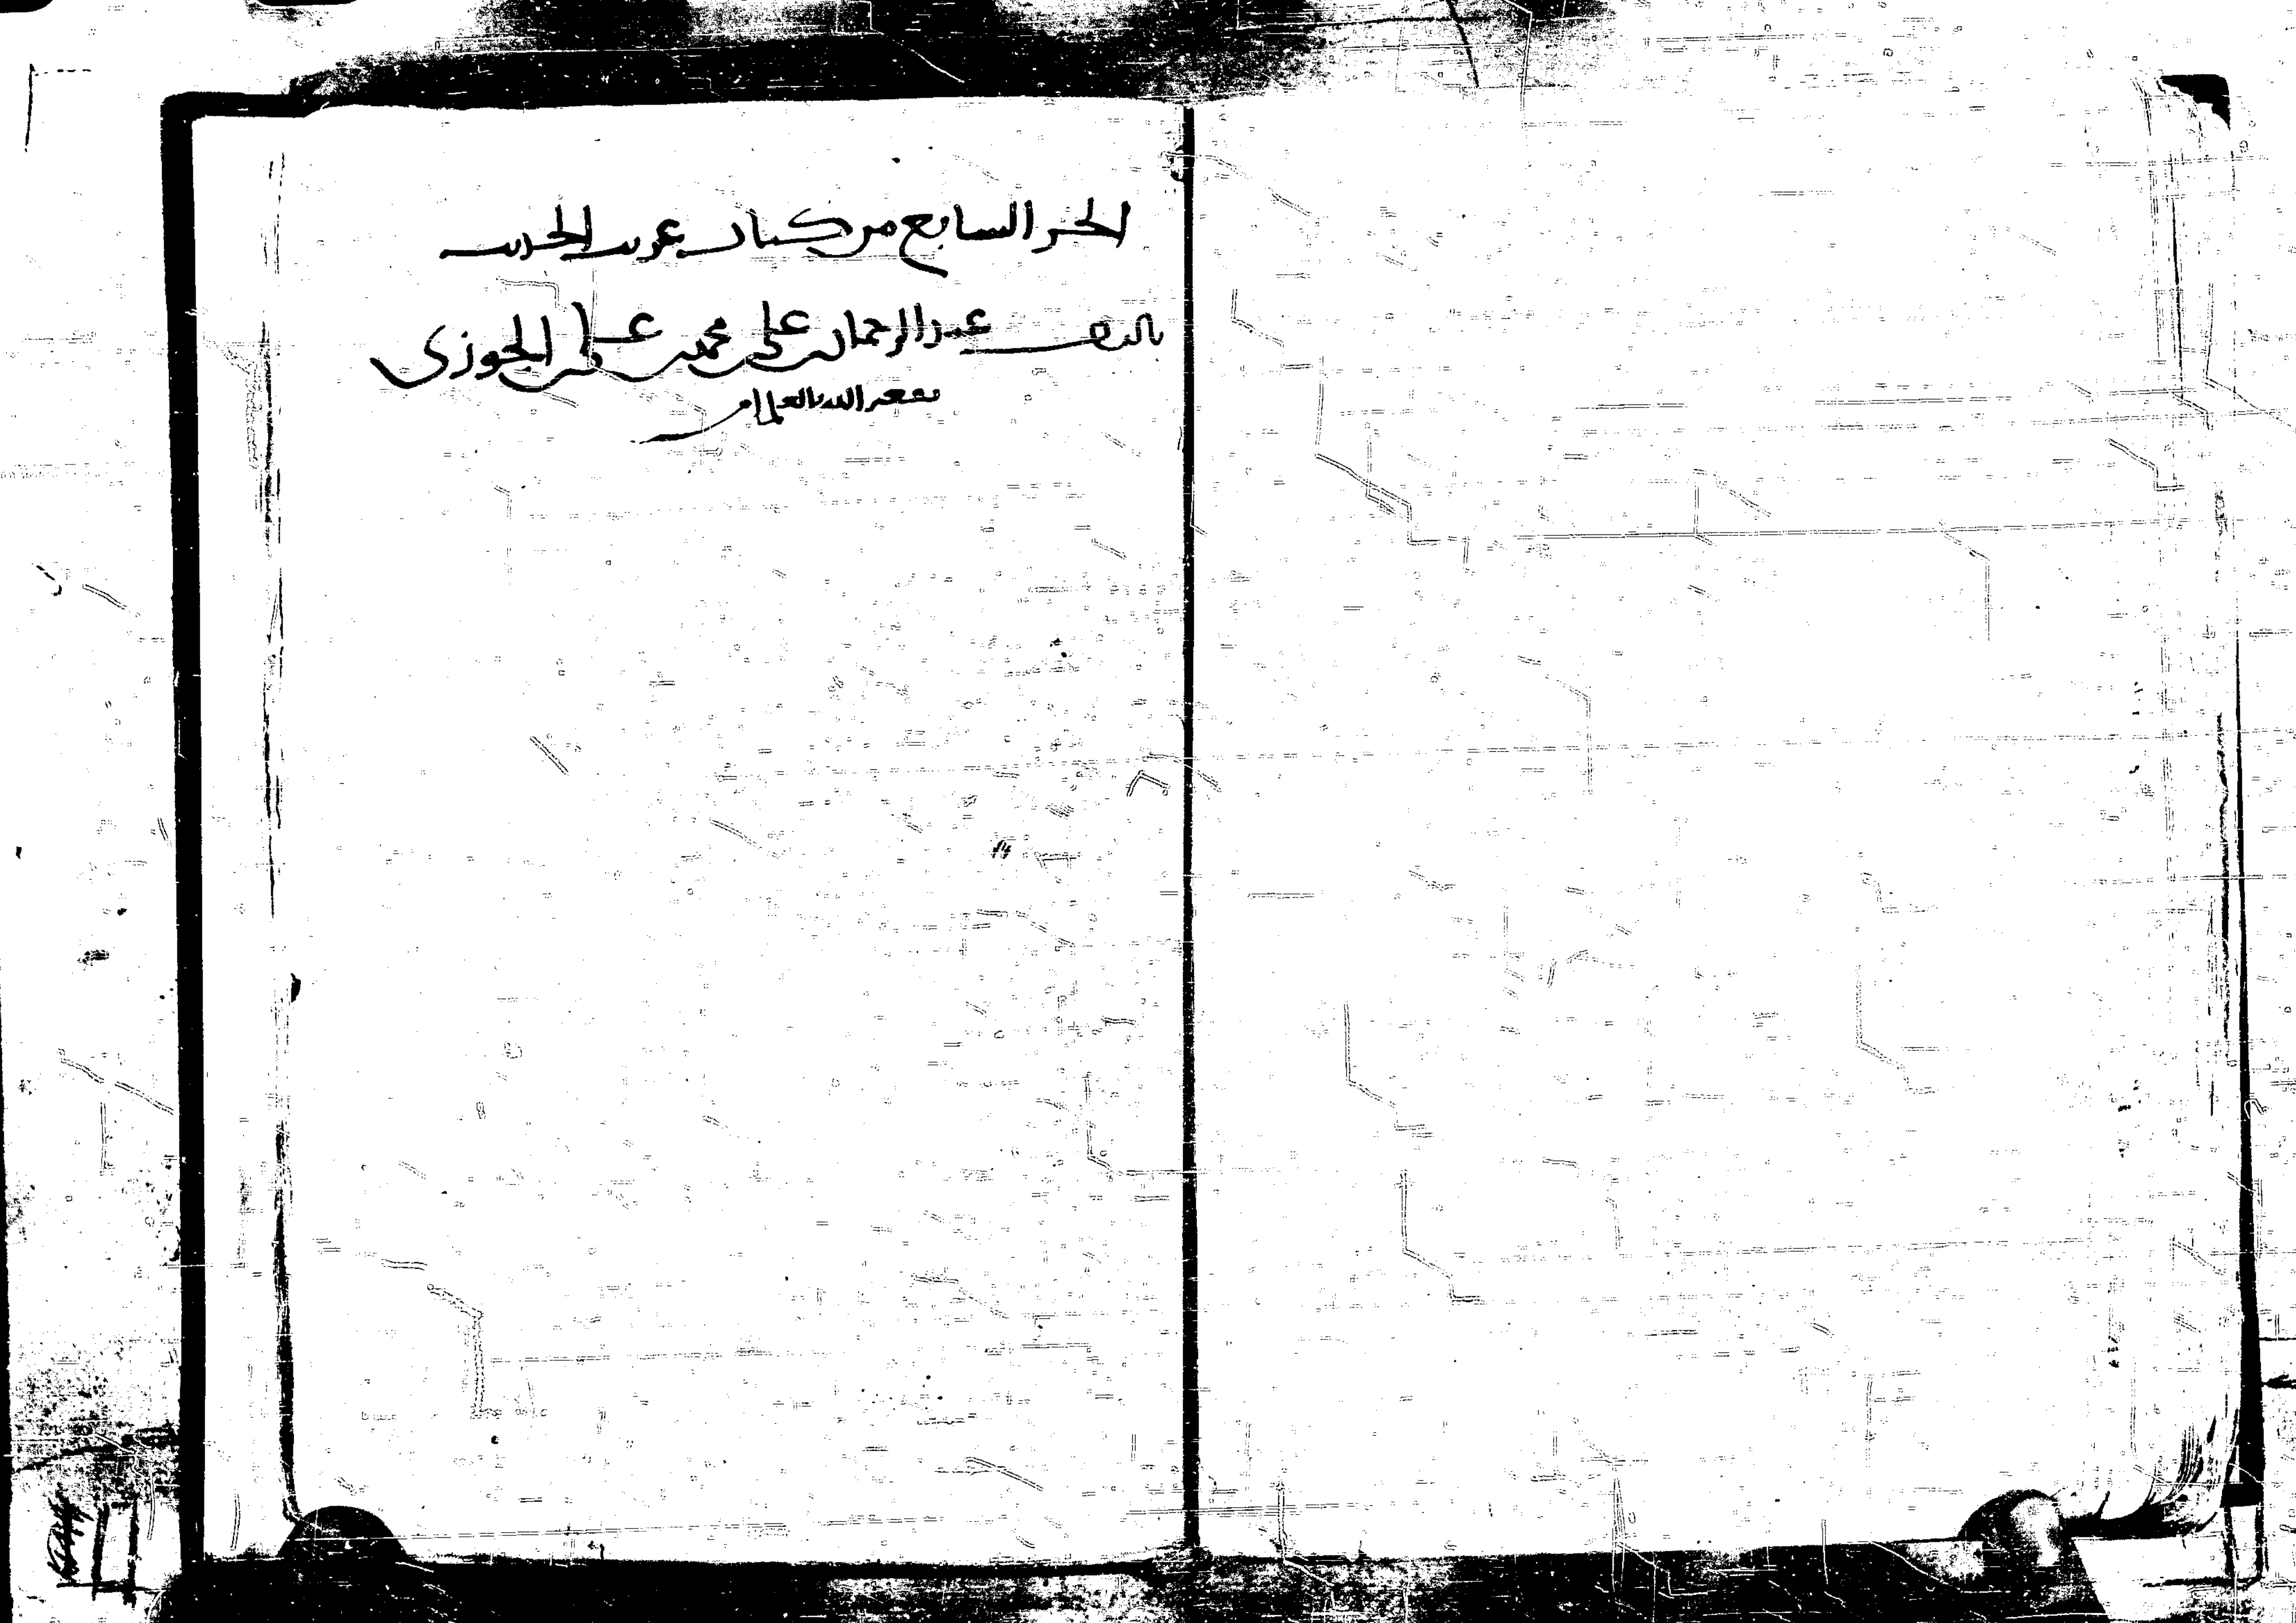 الجز السابع من كتاب غريب الحديث
تاليف عبد الرحمان بن علي بن محمد بن علي الجوزي
نفعه الله بالعلم امين